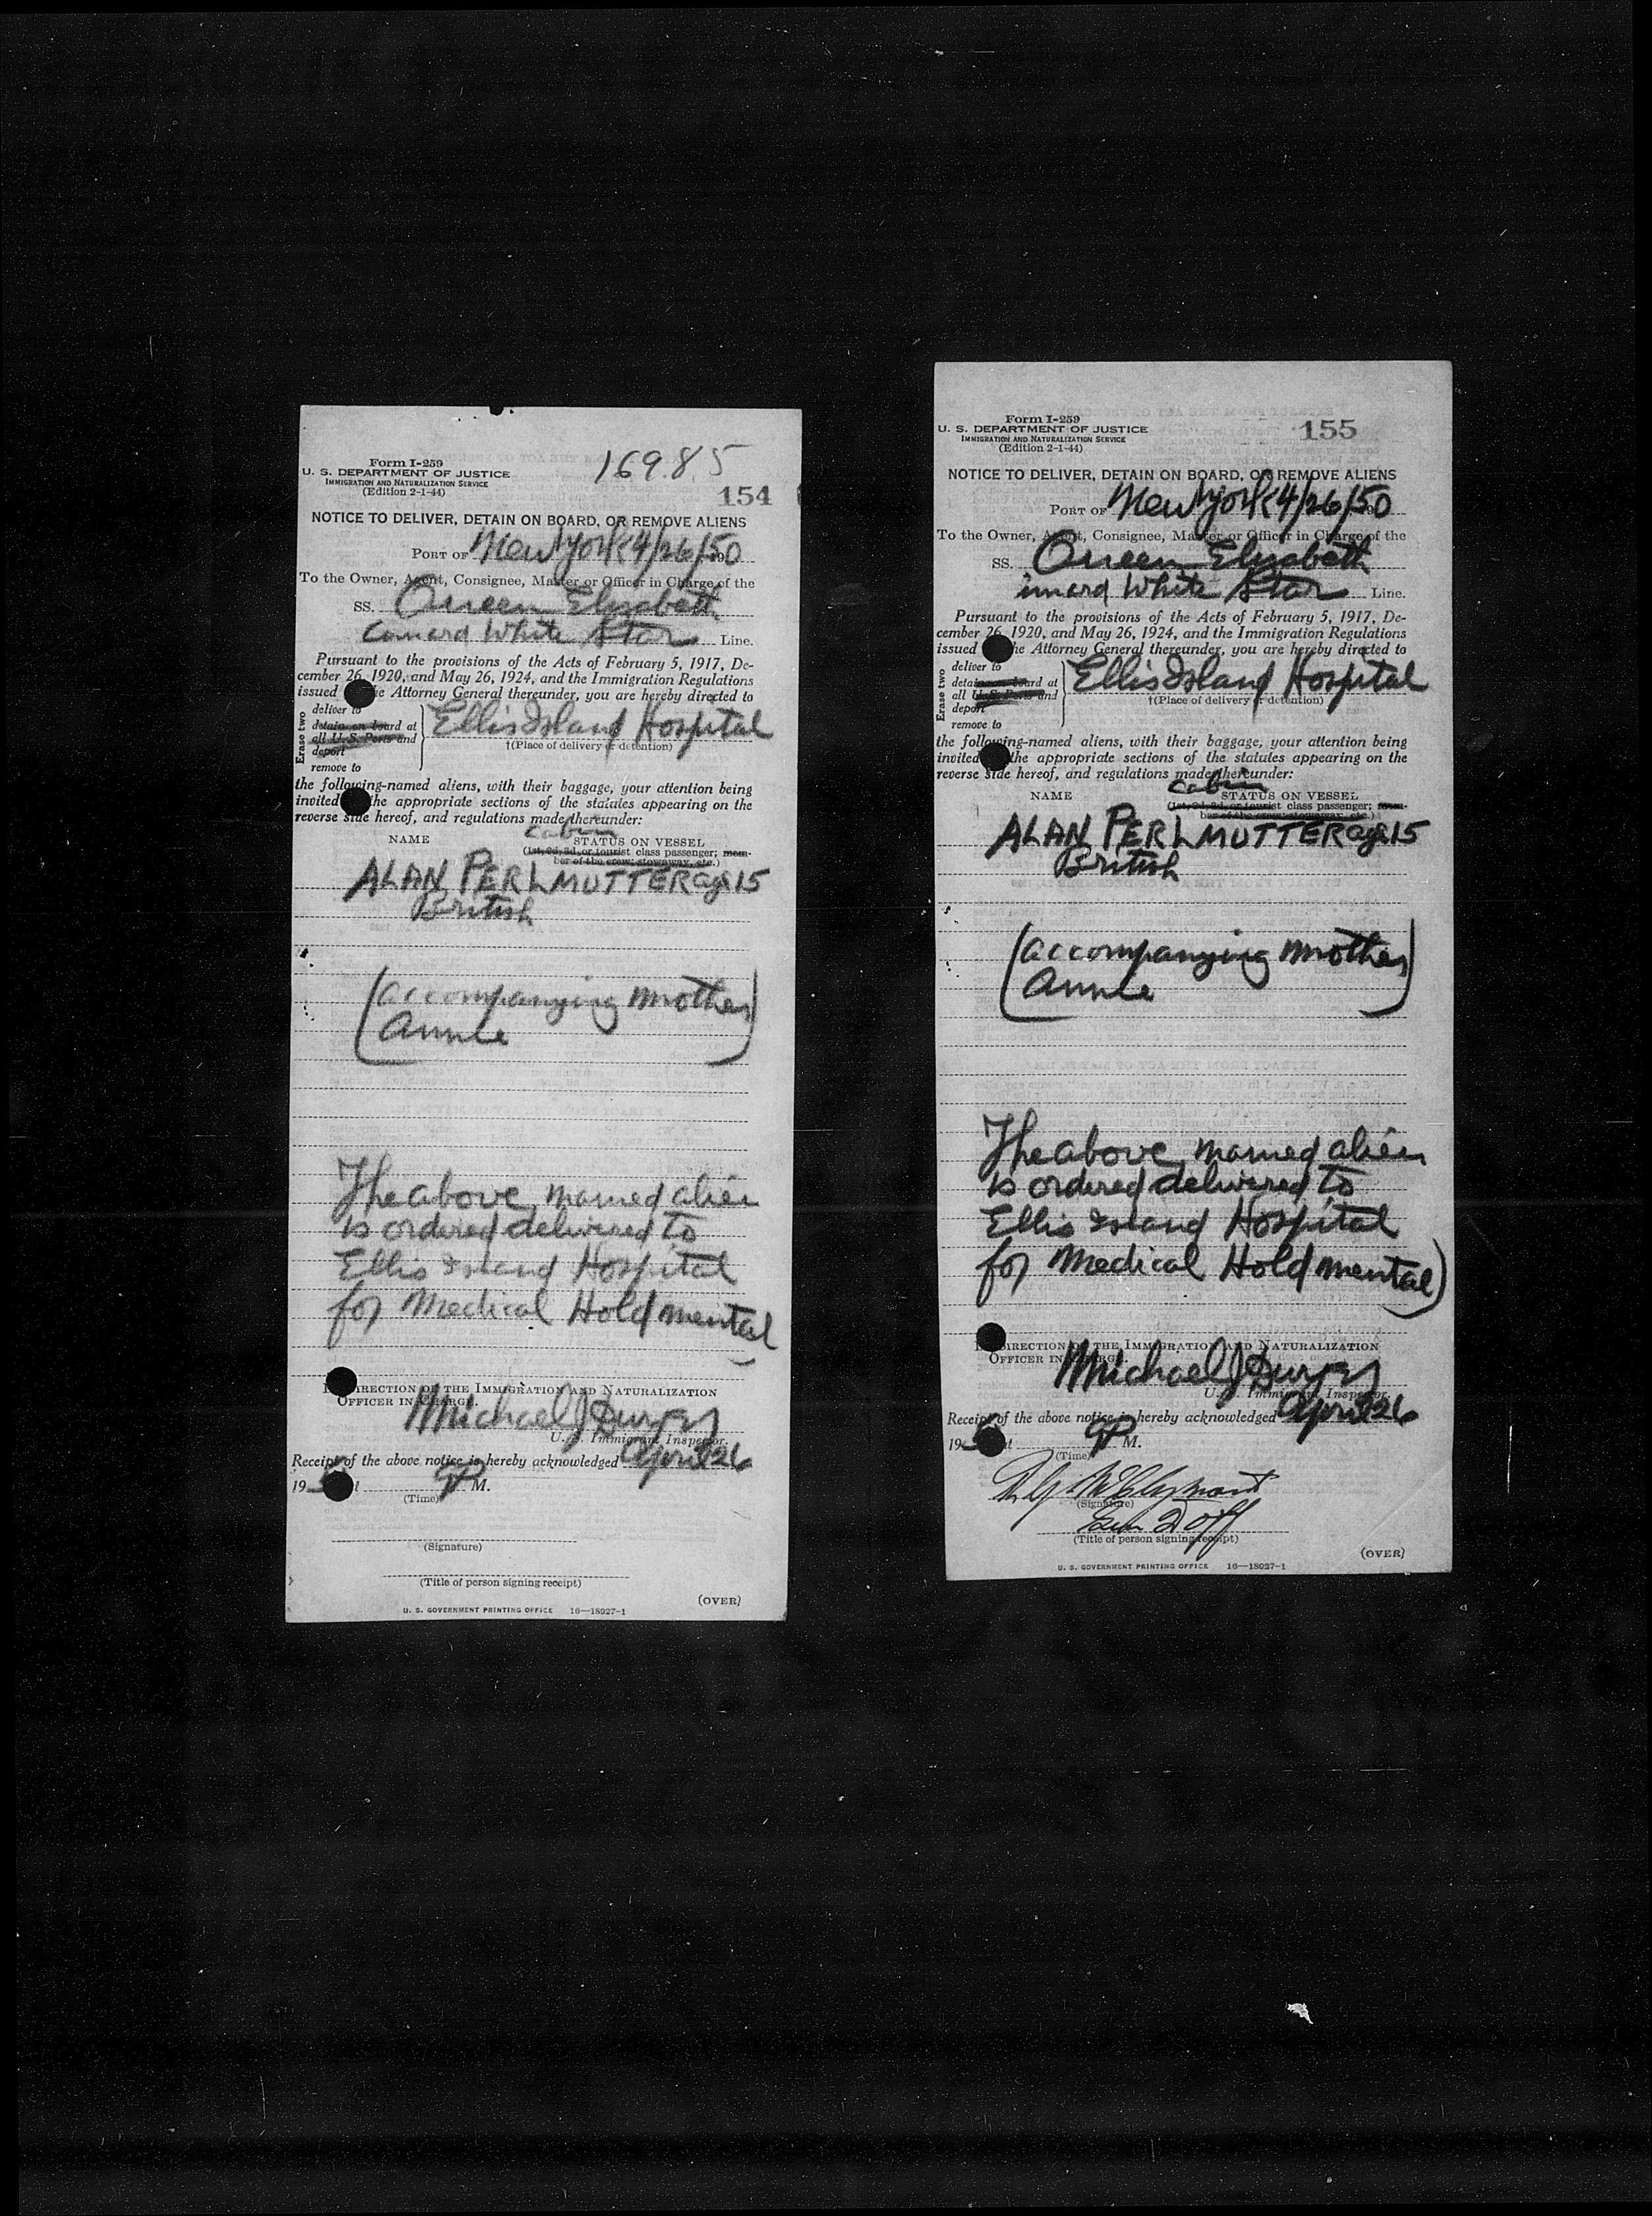 Form I-259
U. S. DEPARTMENT OF JUSTICE
IMMIGRATION AND NATURALIZATION SERVICE
(Edition 2-1-44)
169.85
154
NOTICE TO DELIVER, DETAIN ON BOARD, OR REMOVE ALIENS
PORT OF New York 4/26/50
To the Owner, Agent, Consignee, Master or Officer in Charge of the
SS. Queen Elizabeth
Cunard White Star Line.
Pursuant to the provisions of the Acts of February 5, 1917, De-
cember 26, 1920, and May 26, 1924, and the Immigration Regulations
issued the Attorney General thereunder, you are hereby directed to
Erase two
deliver to
detain on board at
all U. S. Ports and
deport
remove to
Ellis Island Hospital
†(Place of delivery or detention)
the following-named aliens, with their baggage, your attention being
invited the appropriate sections of the statutes appearing on the
reverse side hereof, and regulations made thereunder:
cabin
NAME STATUS ON VESSEL
(1st, 2d, 3d, or tourist class passenger; mem-
ber of the crew; stowaway, etc.)
ALAN PERLMUTTER age 15
British
(accompanying mother
Annie)
The above named alien
is ordered delivered to
Ellis Island Hospital
for Medical Hold mental
DIRECTION OF THE IMMIGRATION AND NATURALIZATION
OFFICER IN CHARGE.
Michael J
U. S. Immigrant Inspector.
Receipt of the above notice is hereby acknowledged April 26
195 P M.
(Time)
(Signature)
(Title of person signing receipt)
U. S. GOVERNMENT PRINTING OFFICE 16—18927-1
(OVER)
Form I-259
U. S. DEPARTMENT OF JUSTICE
IMMIGRATION AND NATURALIZATION SERVICE
(Edition 2-1-44)
155
NOTICE TO DELIVER, DETAIN ON BOARD, OR REMOVE ALIENS
PORT OF New York 4/26/50
To the Owner, Agent, Consignee, Master or Officer in Charge of the
SS. Queen Elizabeth
unard White Star Line.
Pursuant to the provisions of the Acts of February 5, 1917, De-
cember 26, 1920, and May 26, 1924, and the Immigration Regulations
issued the Attorney General thereunder, you are hereby directed to
Erase two
deliver to
detain on board at
all U. S. Ports and
deport
remove to
Ellis Island Hospital
†(Place of delivery or detention)
the following-named aliens, with their baggage, your attention being
invited the appropriate sections of the statutes appearing on the
reverse side hereof, and regulations made thereunder:
cabin
NAME STATUS ON VESSEL
(1st, 2d, 3d, or tourist class passenger; mem-
ber of the crew; stowaway, etc.)
ALAN PERLMUTTER age 15
British
(accompanying mother
Annie)
The above named alien
is ordered delivered to
Ellis Island Hospital
for Medical Hold mental)
DIRECTION OF THE IMMIGRATION AND NATURALIZATION
OFFICER IN CHARGE.
Michael J
U. S. Immigrant Inspector.
Receipt of the above notice is hereby acknowledged April 26
195 P M.
(Time)
(Signature)
(Title of person signing receipt)
U. S. GOVERNMENT PRINTING OFFICE 16—18927-1
(OVER)